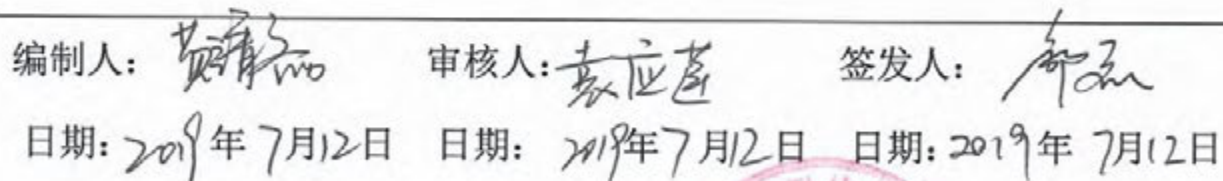 编制人: 黄清磊 审核人: 袁应莲 签发人:
日期: 2019年7月12日 日期: 2019年7月12日 日期: 2019年7月12日